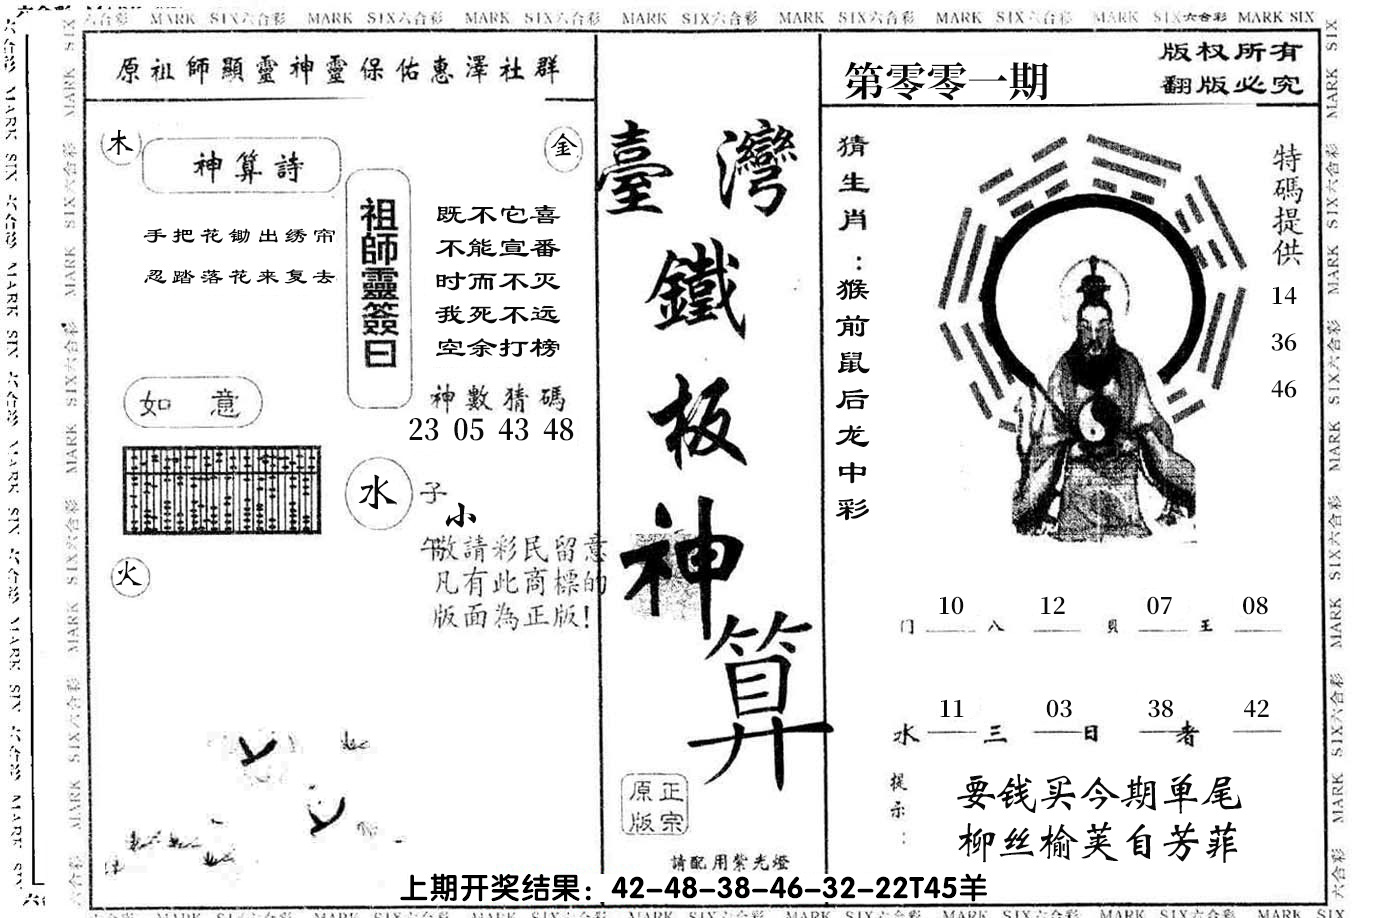 MARK SIX六合彩 MARK SIX六合彩 MARK SIX六合彩 MARK SIX六合彩 MARK SIX六合彩 MARK SIX六合彩 MARK SIX六合彩 MARK SIX
原祖師顯靈神靈保佑惠澤社群
木
金
神算詩
手把花锄出绣帘
忍踏落花来复去
祖師靈簽曰
既不它喜
不能宣番
时而不灭
我死不远
空余打榜
神數猜碼
23 05 43 48
如意
水
子
小
午
火
敬請彩民留意
凡有此商標的
版面為正版!
臺灣
鐵
板
神
算
正宗
原版
請配用紫光燈
第零零一期
版权所有
翻版必究
猜生肖:猴前鼠后龙中彩
特碼提供
14
36
46
10 12 07 08
门 八 貝 王
11 03 38 42
水 三 日 者
提示:
要钱买今期单尾
柳丝榆荚自芳菲
上期开奖结果：42-48-38-46-32-22T45羊